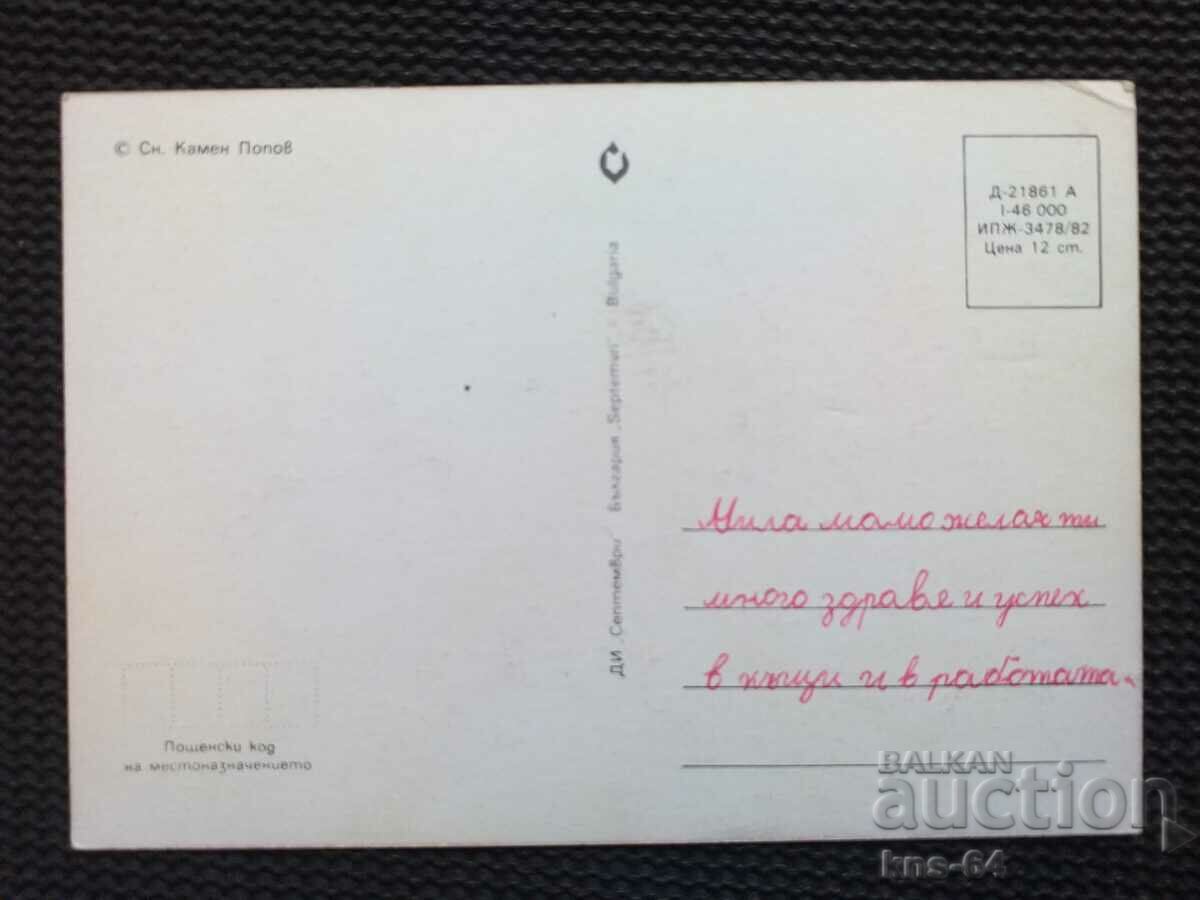 © Сн. Камен Попов
Д-21861 А
I-46 000
ИПЖ-3478/82
Цена 12 ст.
ДИ „Септември" България „Septemvri" - Bulgaria
Мила мамо желая ти
много здраве и успех
в къщи и в работата.
Пощенски код
на местоназначението
BALKAN
auction
kns-64